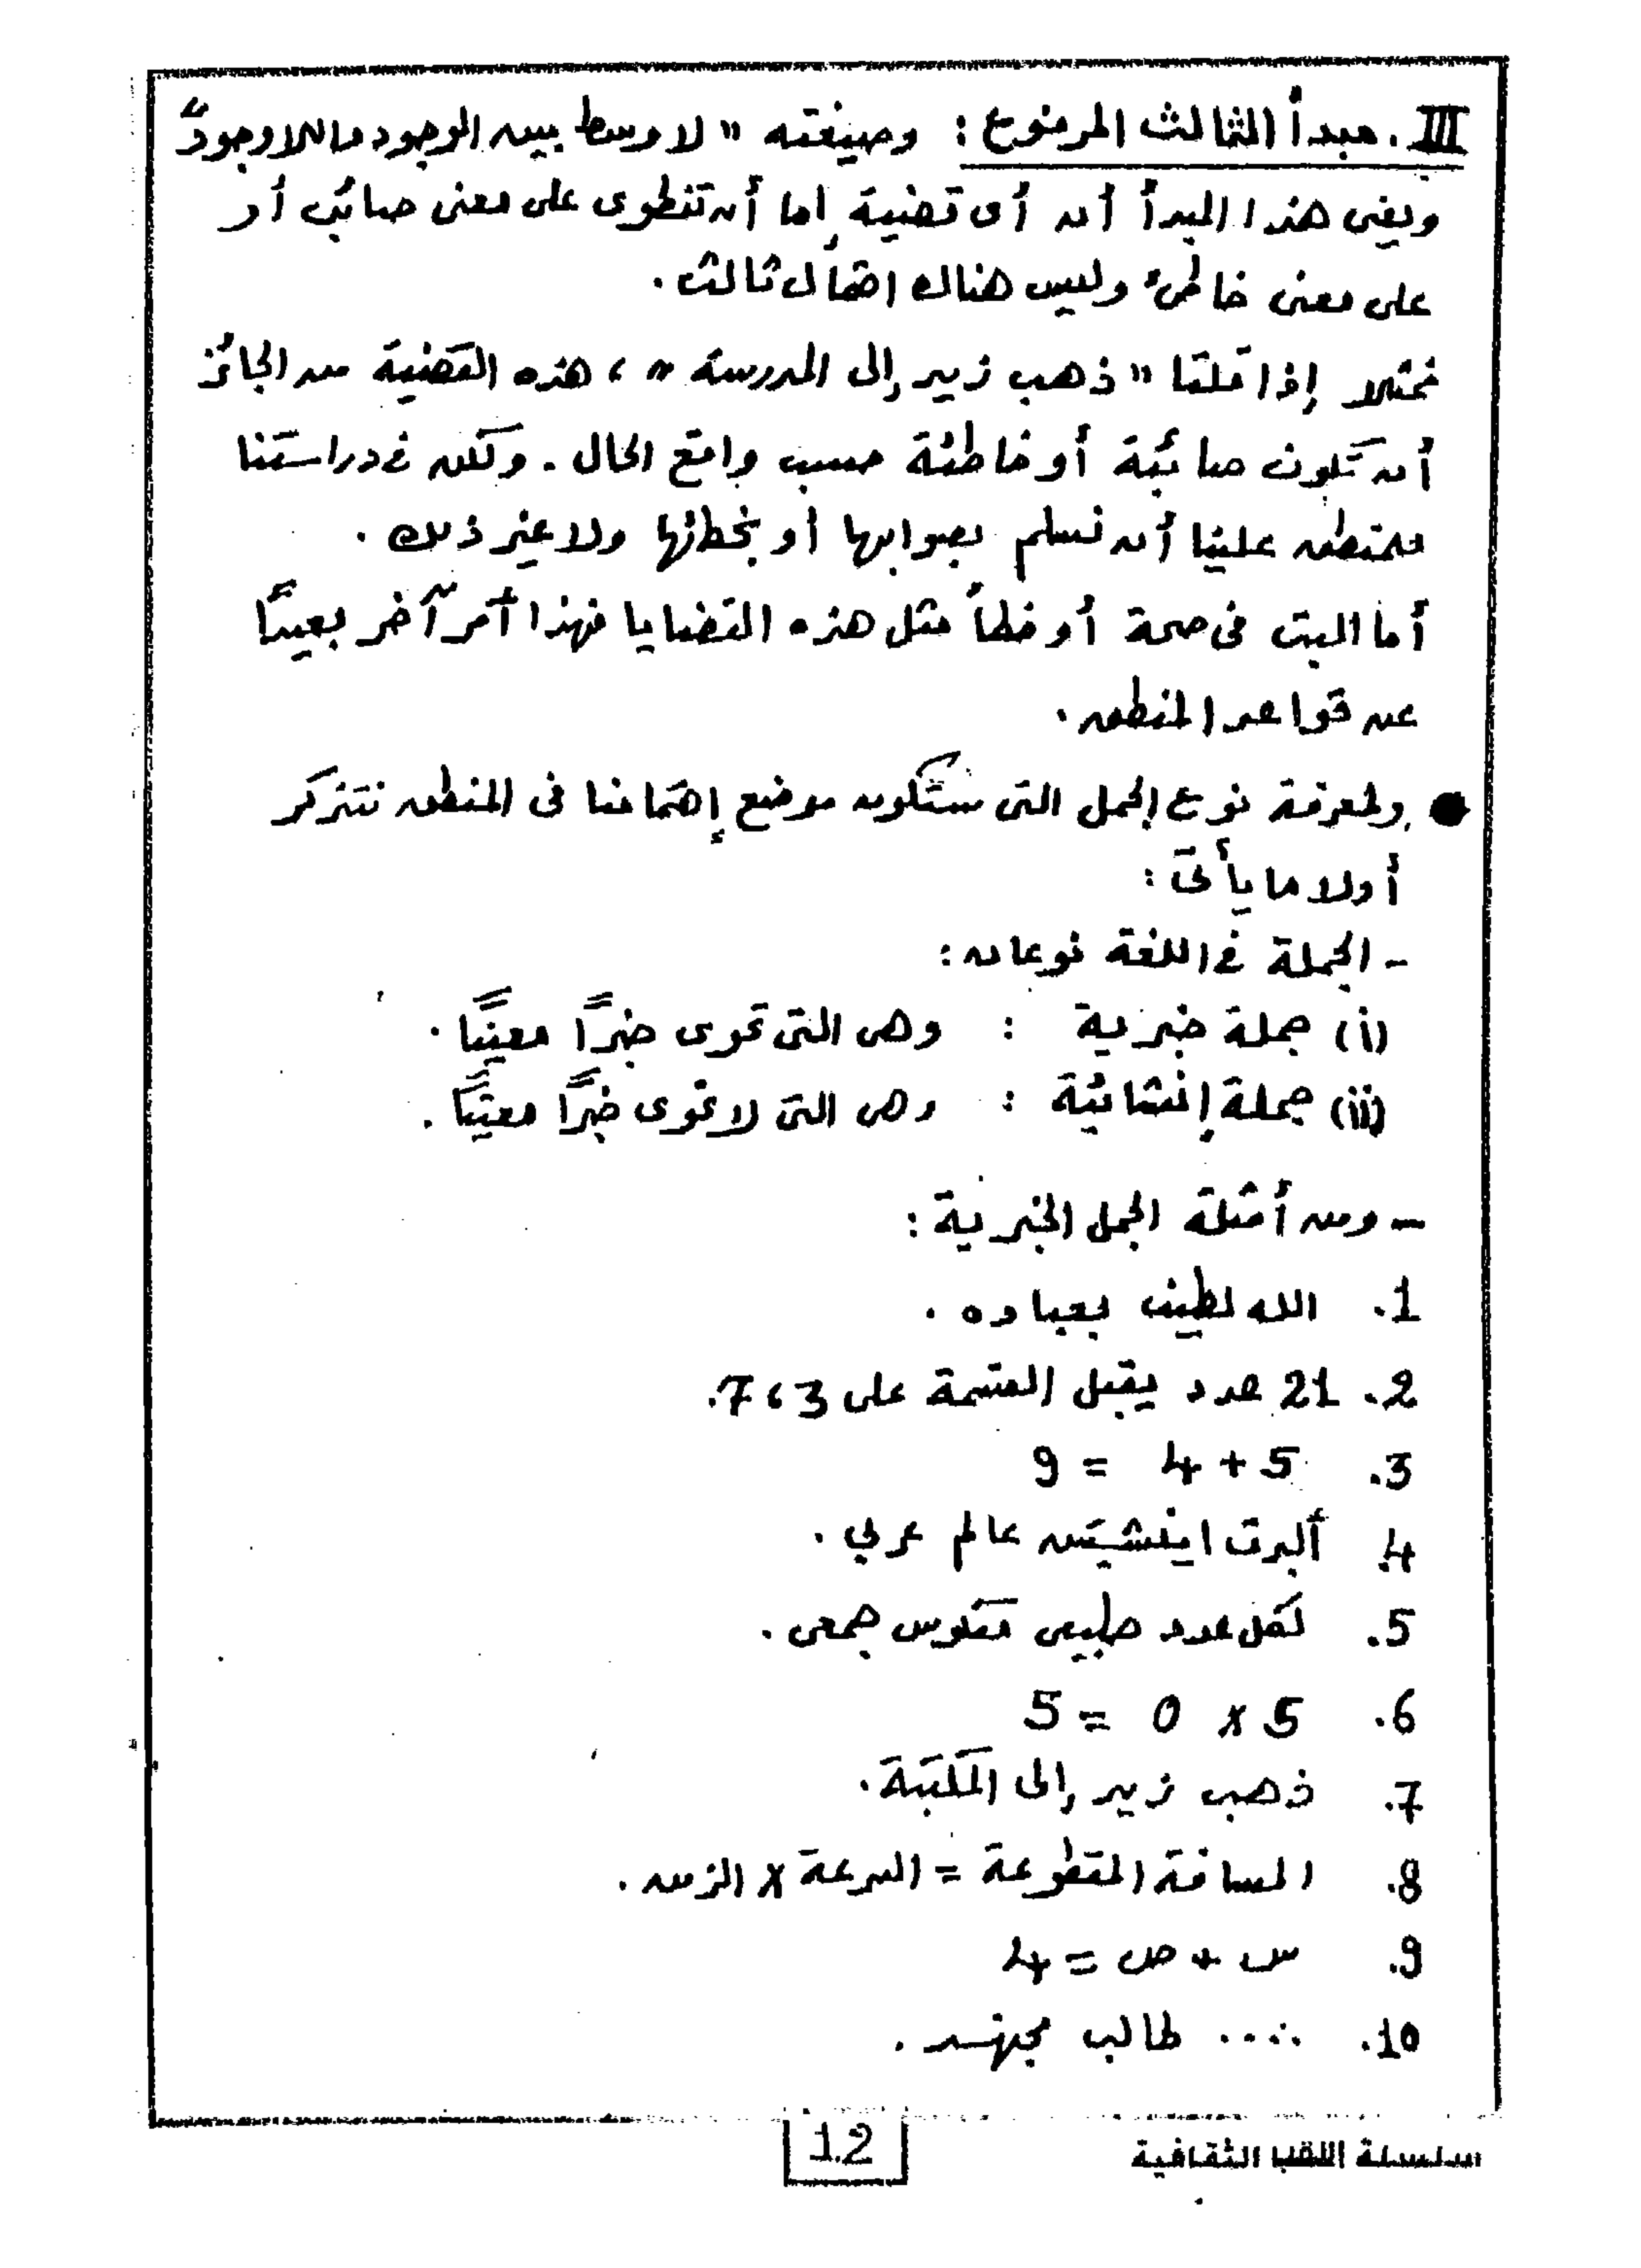 III. مبدأ الثالث المرفوع : وصيغته " لا وسط بين الوجود واللاوجود "
ويعنى هذا المبدأ أن أى قضية إما أن تنطوى على معنى صائب أو
على معنى خاطئ وليس هناك احتمال ثالث .
فمثلا إذا قلنا " ذهب زيد إلى المدرسة " ، هذه القضية من الجائز
أن تكون صائبة أو خاطئة حسب واقع الحال . ولكن فى دراستنا
للمنطق علينا أن نسلم بصوابها أو بخطئها ولا غير ذلك .
أما البت فى صحة أو خطأ مثل هذه القضايا فهذا أمر آخر بعيدًا
عن قواعد المنطق .
● ولمعرفة نوع الجمل التى ستكون موضع إهتمامنا فى المنطق نتذكر
أولا ما يأتى :
- الجملة فى اللغة نوعان :
(i) جملة خبرية : وهى التى تحوى خبرًا معينًا .
(ii) جملة إنشائية : وهى التى لا تحوى خبرًا معينًا .
- ومن أمثلة الجمل الخبرية :
1. الله لطيف بعباده .
2. 21 عدد يقبل القسمة على 3 ، 7 .
3. 5 + 4 = 9
4. ألبرت اينشتين عالم عربي .
5. لكل عدد طبيعى معكوس جمعى .
6. 5 × 0 = 5
7. ذهب زيد إلى المكتبة .
8. المسافة المقطوعة = السرعة × الزمن .
9. س + ص = 4
10. ..... طالب مجتهد .
12
سلسلة اللقب الثقافية